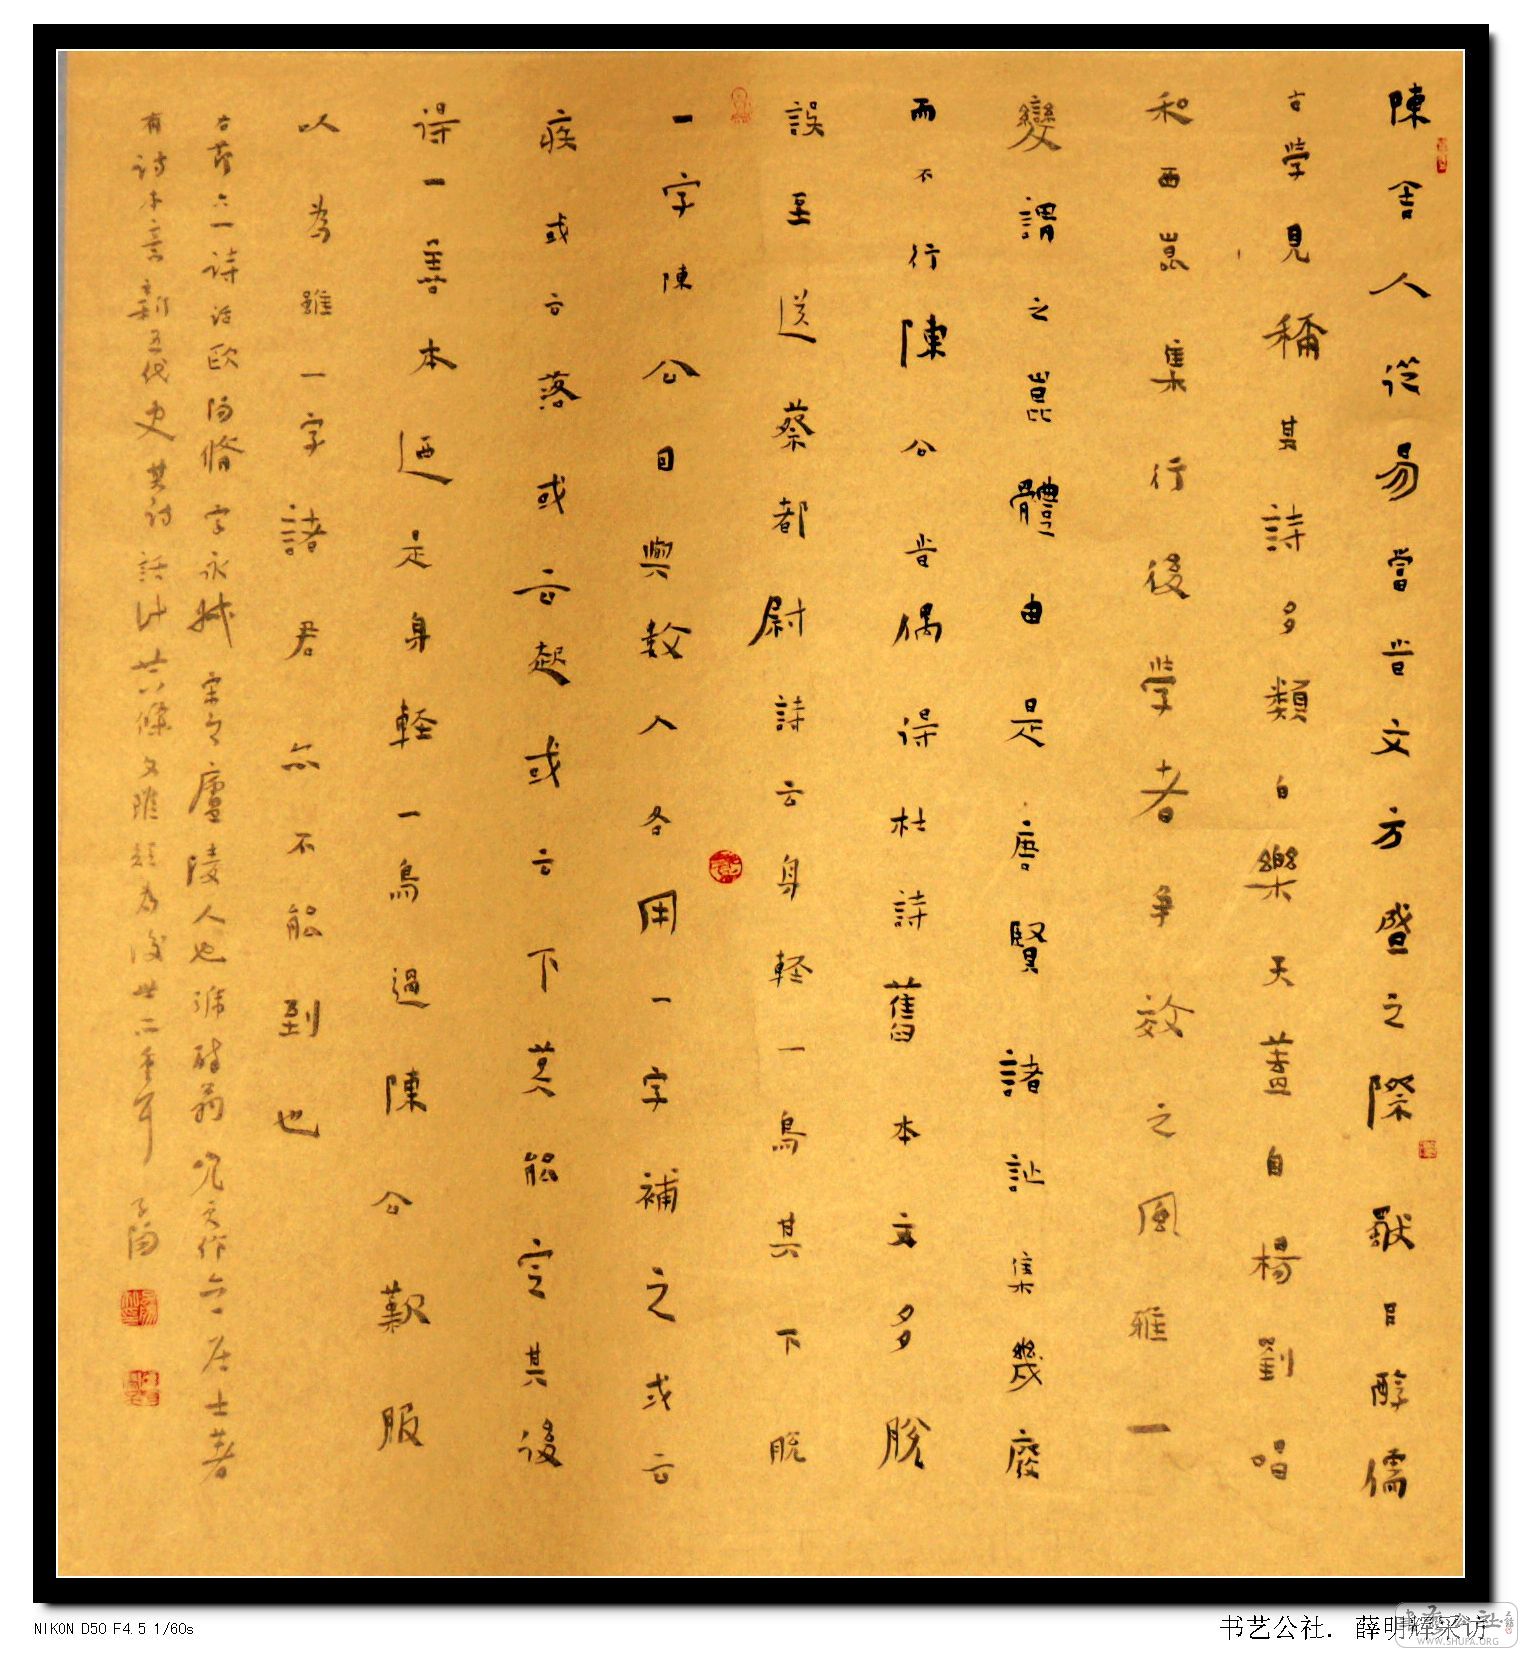 陳舍人從易當峕文方盛之際獨㠯醇儒
古學見稱其詩多類白樂天蓋自楊劉唱
和西崑集行後學者爭效之風雅一
變謂之崑體由是唐賢諸詩集幾廢
而不行陳公峕偶得杜詩舊本文多脫
誤至送蔡都尉詩云身輕一鳥其下脫
一字陳公因與數人各用一字補之或云
疾或云落或云起或云下莫能定其後
得一善本迺是身輕一鳥過陳公歎服
以為雖一字諸君亦不能到也
右节六一诗话欧陽脩字永叔宋之廬陵人也號醉翁晚又作六一居士著
有诗本音新五代史其诗話計廿八條文雖短為後世
子陽
NIKON D50 F4.5 1/60s
书艺公社. 薛明辉采访
书艺公社
WWW.SHUFA.ORG